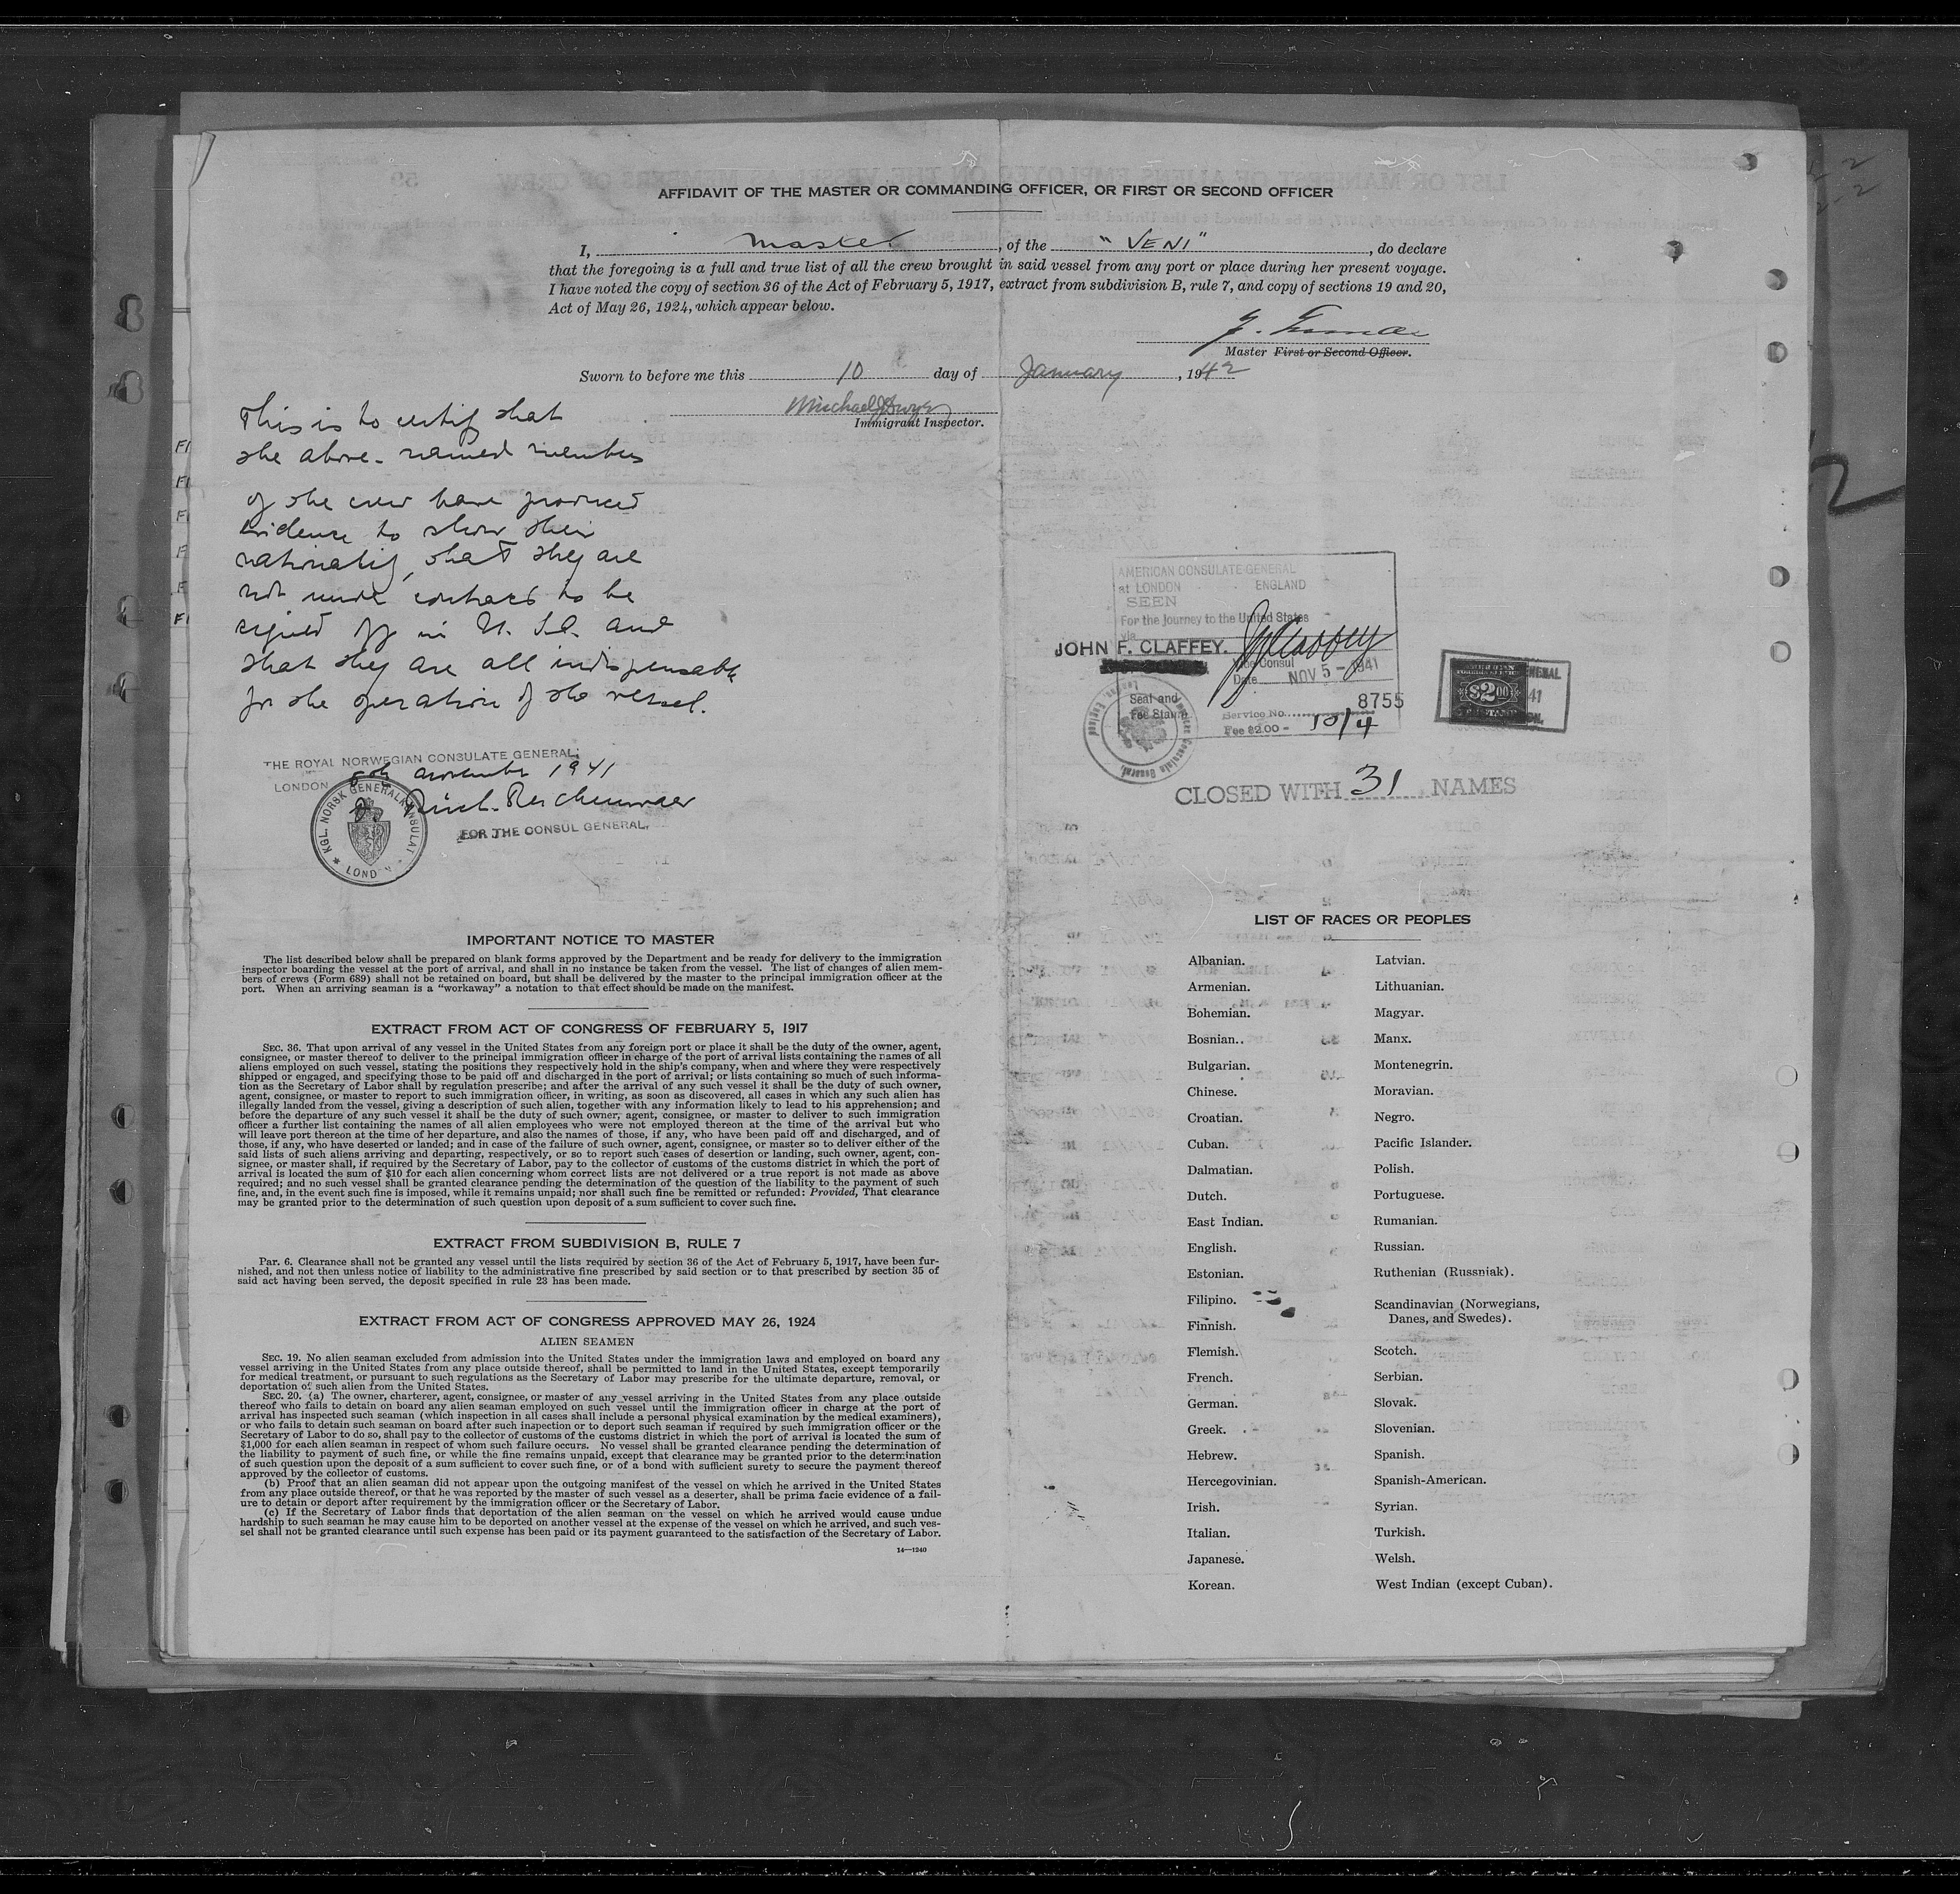 AFFIDAVIT OF THE MASTER OR COMMANDING OFFICER, OR FIRST OR SECOND OFFICER
I, Master, of the "VENI", do declare
that the foregoing is a full and true list of all the crew brought in said vessel from any port or place during her present voyage.
I have noted the copy of section 36 of the Act of February 5, 1917, extract from subdivision B, rule 7, and copy of sections 19 and 20,
Act of May 26, 1924, which appear below.
Master First or Second Officer.
Sworn to before me this 10 day of January, 1942
Michael J Dwyer
Immigrant Inspector.
This is to certify that
the above-named members
of the crew have produced
evidence to show their
nationality, that they are
not under contract to be
signed off in U.S.A. and
that they are all indispensable
for the operation of the vessel.
THE ROYAL NORWEGIAN CONSULATE GENERAL,
LONDON
november 1941
FOR THE CONSUL GENERAL,
KGL. NORSK GENERALKONSULAT
LONDON
AMERICAN CONSULATE GENERAL
at LONDON ENGLAND
SEEN
For the journey to the United States
via
JOHN F. CLAFFEY.
Vice Consul
Date NOV 5 - 1941
Seal and
Fee Stamp
8755
Service No. 10/4
Fee $2.00 -
$2.00
CLOSED WITH 31 NAMES
IMPORTANT NOTICE TO MASTER
The list described below shall be prepared on blank forms approved by the Department and be ready for delivery to the immigration
inspector boarding the vessel at the port of arrival, and shall in no instance be taken from the vessel. The list of changes of alien mem-
bers of crews (Form 689) shall not be retained on board, but shall be delivered by the master to the principal immigration officer at the
port. When an arriving seaman is a “workaway” a notation to that effect should be made on the manifest.
EXTRACT FROM ACT OF CONGRESS OF FEBRUARY 5, 1917
SEC. 36. That upon arrival of any vessel in the United States from any foreign port or place it shall be the duty of the owner, agent,
consignee, or master thereof to deliver to the principal immigration officer in charge of the port of arrival lists containing the names of all
aliens employed on such vessel, stating the positions they respectively hold in the ship's company, when and where they were respectively
shipped or engaged, and specifying those to be paid off and discharged in the port of arrival; or lists containing so much of such informa-
tion as the Secretary of Labor shall by regulation prescribe; and after the arrival of any such vessel it shall be the duty of such owner,
agent, consignee, or master to report to such immigration officer, in writing, as soon as discovered, all cases in which any such alien has
illegally landed from the vessel, giving a description of such alien, together with any information likely to lead to his apprehension; and
before the departure of any such vessel it shall be the duty of such owner, agent, consignee, or master to deliver to such immigration
officer a further list containing the names of all alien employees who were not employed thereon at the time of the arrival but who
will leave port thereon at the time of her departure, and also the names of those, if any, who have been paid off and discharged, and of
those, if any, who have deserted or landed; and in case of the failure of such owner, agent, consignee, or master so to deliver either of the
said lists of such aliens arriving and departing, respectively, or so to report such cases of desertion or landing, such owner, agent, con-
signee, or master shall, if required by the Secretary of Labor, pay to the collector of customs of the customs district in which the port of
arrival is located the sum of $10 for each alien concerning whom correct lists are not delivered or a true report is not made as above
required; and no such vessel shall be granted clearance pending the determination of the question of the liability to the payment of such
fine, and, in the event such fine is imposed, while it remains unpaid; nor shall such fine be remitted or refunded: Provided, That clearance
may be granted prior to the determination of such question upon deposit of a sum sufficient to cover such fine.
EXTRACT FROM SUBDIVISION B, RULE 7
Par. 6. Clearance shall not be granted any vessel until the lists required by section 36 of the Act of February 5, 1917, have been fur-
nished, and not then unless notice of liability to the administrative fine prescribed by said section or to that prescribed by section 35 of
said act having been served, the deposit specified in rule 23 has been made.
EXTRACT FROM ACT OF CONGRESS APPROVED MAY 26, 1924
ALIEN SEAMEN
SEC. 19. No alien seaman excluded from admission into the United States under the immigration laws and employed on board any
vessel arriving in the United States from any place outside thereof, shall be permitted to land in the United States, except temporarily
for medical treatment, or pursuant to such regulations as the Secretary of Labor may prescribe for the ultimate departure, removal, or
deportation of such alien from the United States.
SEC. 20. (a) The owner, charterer, agent, consignee, or master of any vessel arriving in the United States from any place outside
thereof who fails to detain on board any alien seaman employed on such vessel until the immigration officer in charge at the port of
arrival has inspected such seaman (which inspection in all cases shall include a personal physical examination by the medical examiners),
or who fails to detain such seaman on board after such inspection or to deport such seaman if required by such immigration officer or the
Secretary of Labor to do so, shall pay to the collector of customs of the customs district in which the port of arrival is located the sum of
$1,000 for each alien seaman in respect of whom such failure occurs. No vessel shall be granted clearance pending the determination of
the liability to payment of such fine, or while the fine remains unpaid, except that clearance may be granted prior to the determination
of such question upon the deposit of a sum sufficient to cover such fine, or of a bond with sufficient surety to secure the payment thereof
approved by the collector of customs.
(b) Proof that an alien seaman did not appear upon the outgoing manifest of the vessel on which he arrived in the United States
from any place outside thereof, or that he was reported by the master of such vessel as a deserter, shall be prima facie evidence of a fail-
ure to detain or deport after requirement by the immigration officer or the Secretary of Labor.
(c) If the Secretary of Labor finds that deportation of the alien seaman on the vessel on which he arrived would cause undue
hardship to such seaman he may cause him to be deported on another vessel at the expense of the vessel on which he arrived, and such ves-
sel shall not be granted clearance until such expense has been paid or its payment guaranteed to the satisfaction of the Secretary of Labor.
14—1240
LIST OF RACES OR PEOPLES
Albanian.
Armenian.
Bohemian.
Bosnian.
Bulgarian.
Chinese.
Croatian.
Cuban.
Dalmatian.
Dutch.
East Indian.
English.
Estonian.
Filipino.
Finnish.
Flemish.
French.
German.
Greek.
Hebrew.
Hercegovinian.
Irish.
Italian.
Japanese.
Korean.
Latvian.
Lithuanian.
Magyar.
Manx.
Montenegrin.
Moravian.
Negro.
Pacific Islander.
Polish.
Portuguese.
Rumanian.
Russian.
Ruthenian (Russniak).
Scandinavian (Norwegians,
Danes, and Swedes).
Scotch.
Serbian.
Slovak.
Slovenian.
Spanish.
Spanish-American.
Syrian.
Turkish.
Welsh.
West Indian (except Cuban).